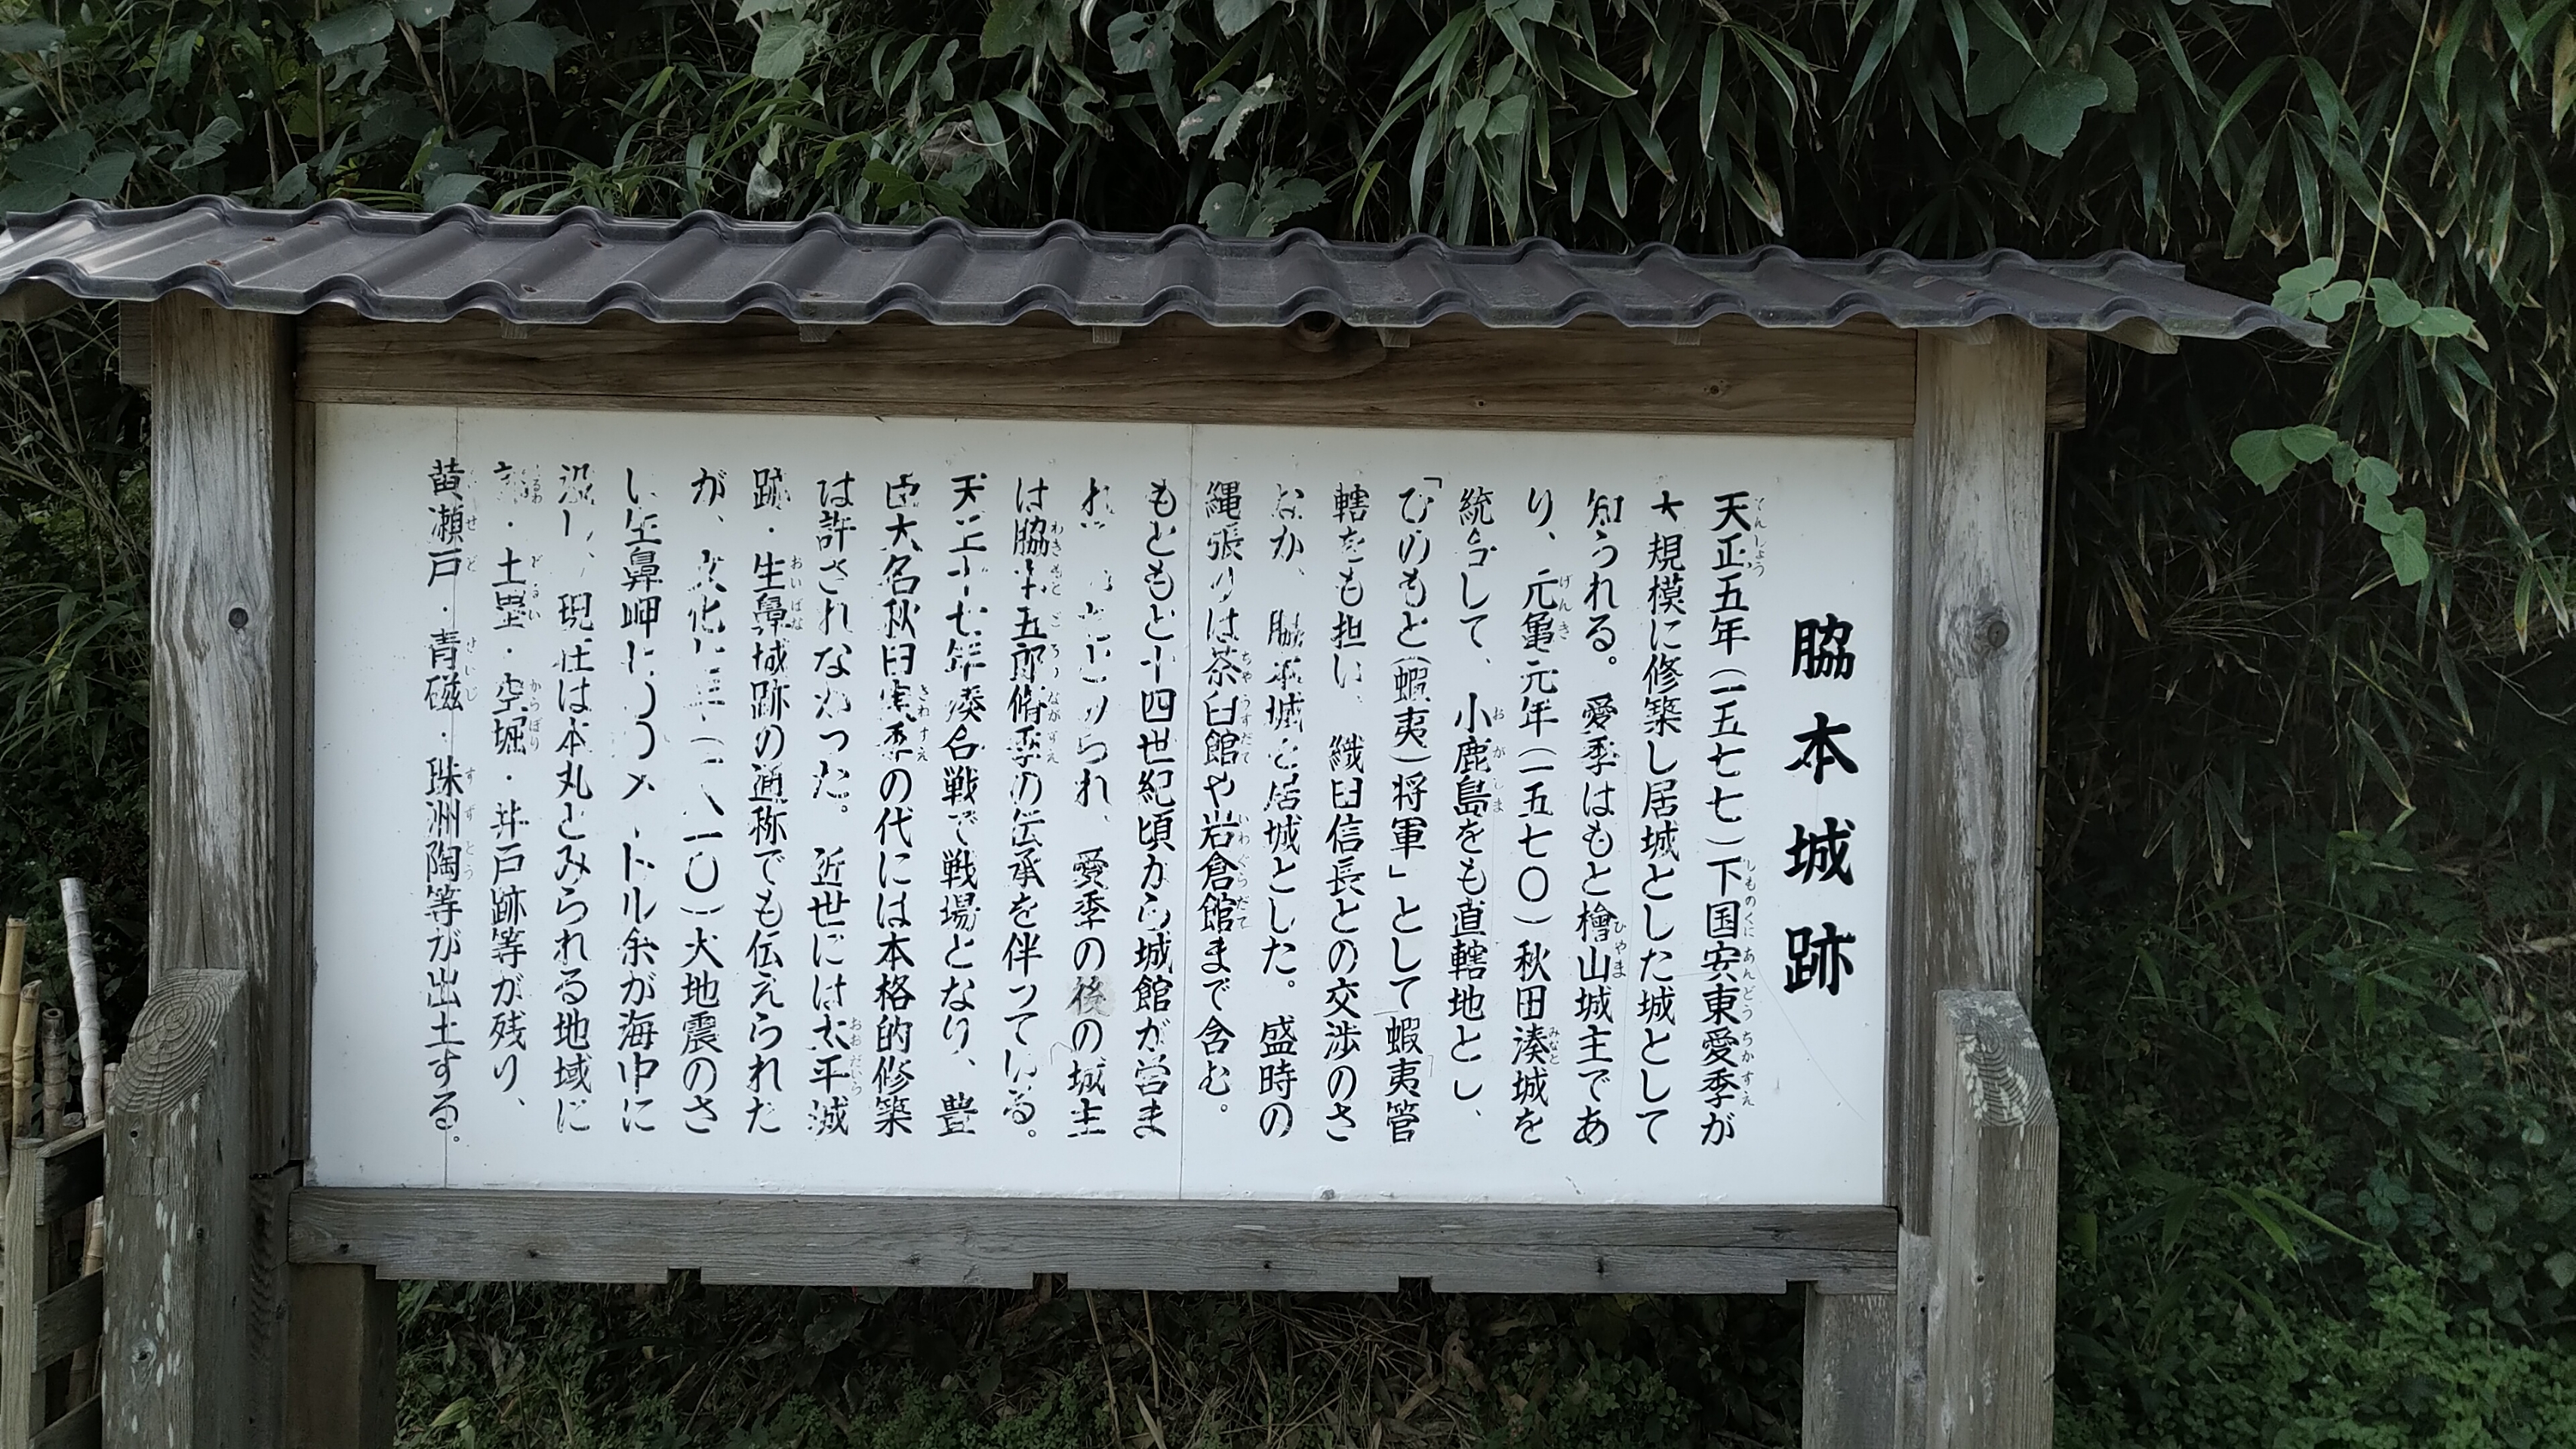 脇本城跡
天正五年（一五七七）下国安東愛季が
大規模に修築し居城とした城として
知られる。愛季はもと檜山城主であ
り、元亀元年（一五七〇）秋田湊城を
統合して、小鹿島をも直轄地とし、
「ひのもと（蝦夷）将軍」として蝦夷管
轄をも担い、織田信長との交渉のさ
なか、脇本城を居城とした。盛時の
縄張りは茶臼館や岩倉館まで含む。
もともと十四世紀頃から城館が営ま
られ、愛季の後の城主
は脇本五郎脩季の伝承を伴っている。
天正十七年湊合戦で戦場となり、豊
臣大名秋田実季の代には本格的修築
は許されなかった。近世には太平城
跡・生鼻城跡の通称でも伝えられた
が、文化七年（一八一〇）大地震のさ
い生鼻岬は メートル余が海中に
没し、現在は本丸とみられる地域に
・土塁・空堀・井戸跡等が残り、
黄瀬戸・青磁・珠洲陶等が出土する。